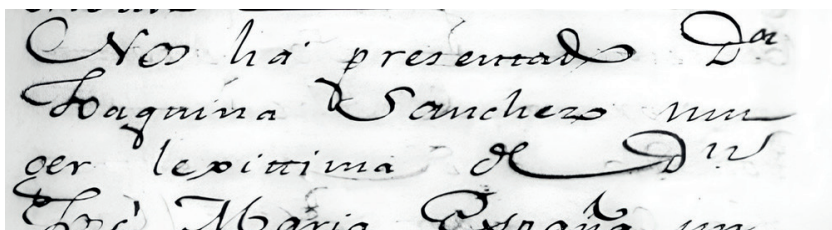 Nos ha presentado Dª
Joaquina Sanchez mu
ger lexittima de Dn
José Maria España un